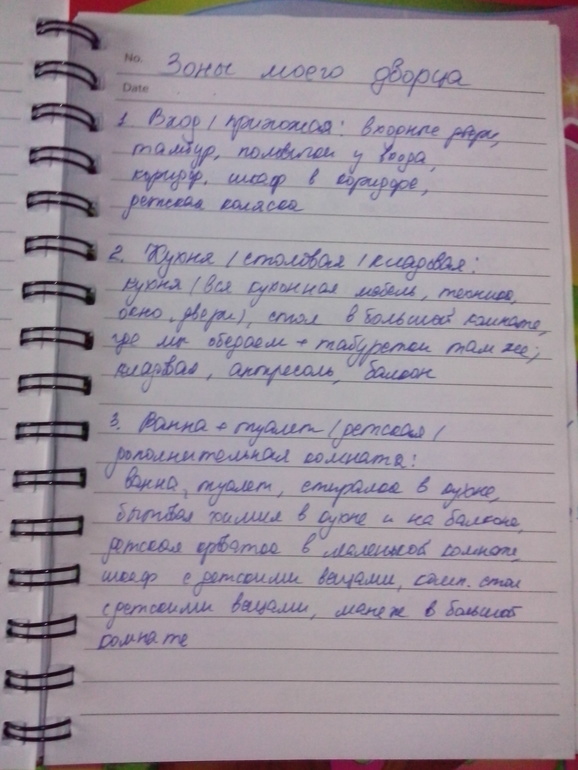 No.
Зоны моего дворца
Date
1. Вход / прихожая: входные двери,
тамбур, половички у входа,
коридор, шкаф в коридоре,
детская коляска
2. Кухня / столовая / кладовая:
кухня (вся кухонная мебель, техника,
окно, двери), стол в большой комнате,
где мы обедаем + табуретки там же;
кладовая, антресоль, балкон
3. Ванна + туалет / детская /
дополнительная комната:
ванна, туалет, стиралка в кухне,
бытовая химия в кухне и на балконе,
детская кроватка в маленькой комнате,
шкаф с детскими вещами, комп. стол
с детскими вещами, манеж в большой
комнате